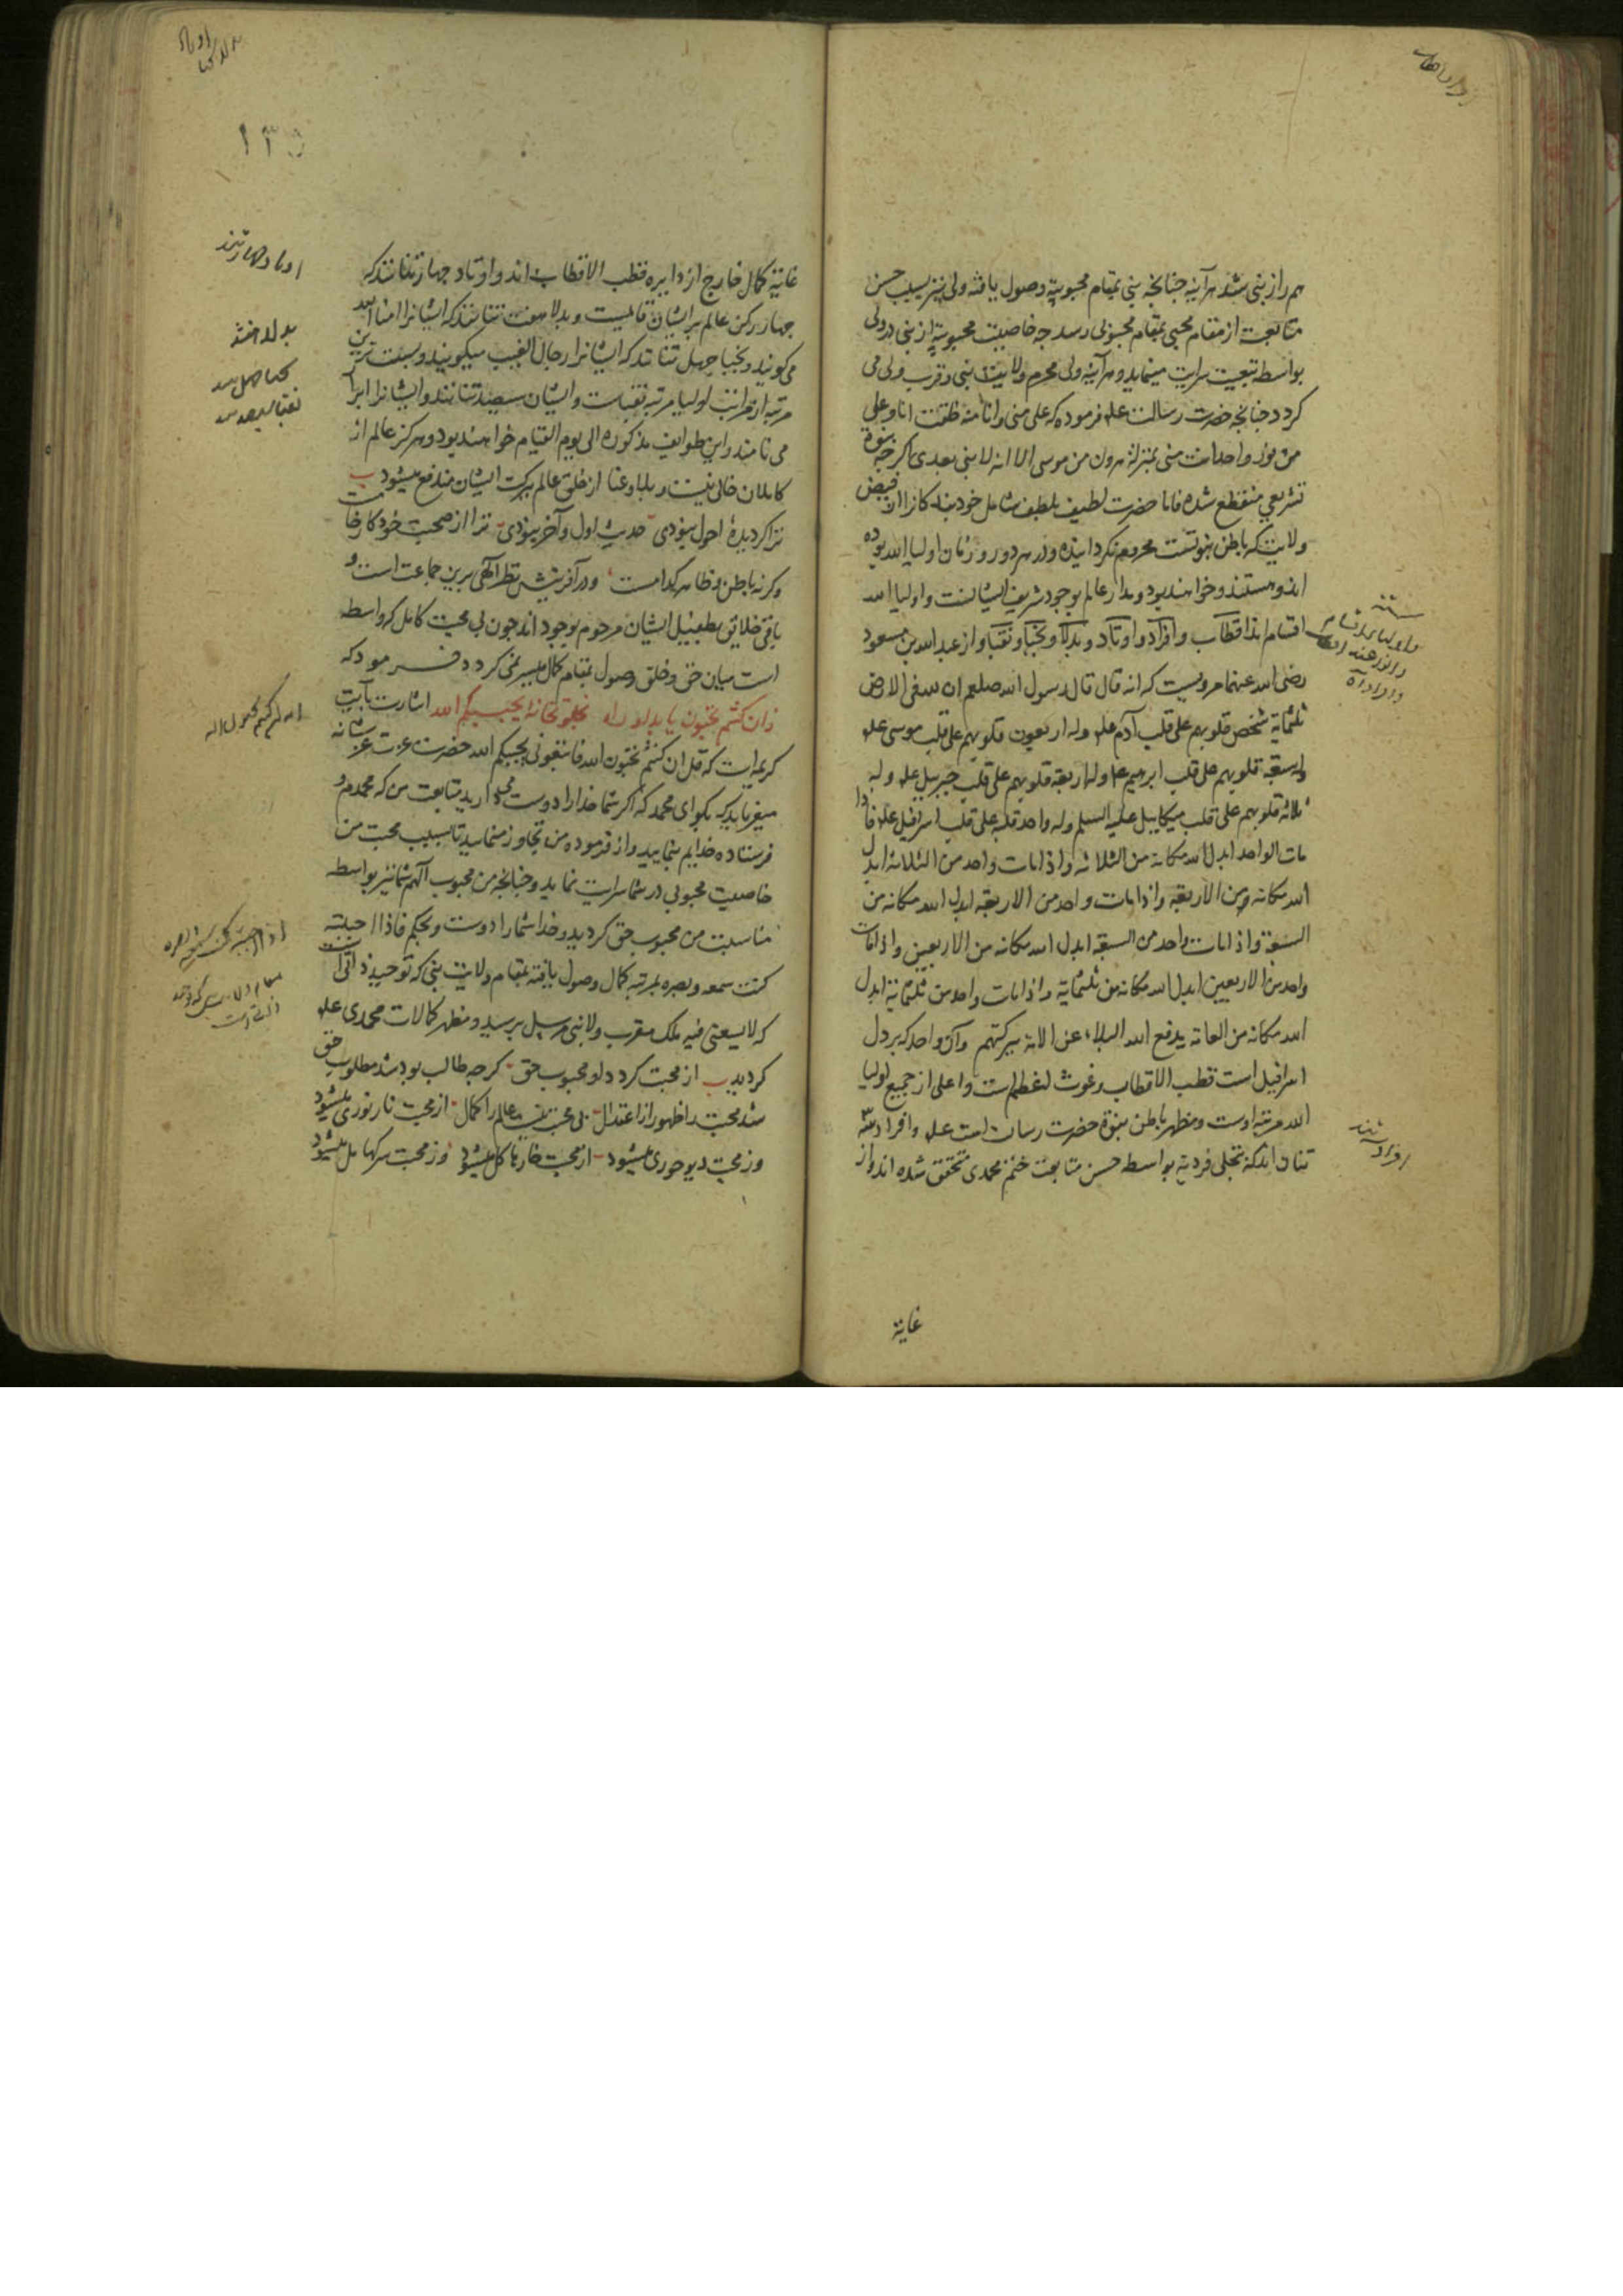 هم راز نبی شد هرآینه چنانچه نبی بمقام محبوبیة وصول یافته ولی نیز بسبب حسن
متابعت از مقام محبی بمقام محبوبی رسد چه خاصیت محبوبیة از نبی در ولی
بواسطه تبعیت سرایت مینماید و هرآینه ولی محرم ولایت نبی و قرب ولی می
کردد چنانچه حضرت رسالت علم فرموده که علی منی وانا منه خلقت انا وعلی
من نور واحد انت منی بمنزلة هرون من موسی الا انه لا نبی بعدی اکرچه نبوة
تشریعی منقطع شده فاما حضرت لطیف بلطف شامل خود بندکانرا از فیض
ولایت که باطن نبوتست محروم نکردانیده و در هر دور و زمان اولیا الله بوده
اند و هستند و خواهند بود و مدار عالم بوجود شریف ایشانست و اولیا الله
اقسام اند اقطاب و افراد و اوتاد و بدلا و نجبا و نقبا و از عبد الله بن مسعود
رضی الله عنهما مرویست که انه قال قال رسول الله صلعم ان لله فی الارض
ثلثمایة شخص قلوبهم علی قلب آدم علم وله اربعون قلوبهم علی قلب موسی علم
وله سبعة قلوبهم علی قلب ابرهیم علم وله اربعة قلوبهم علی قلب جبرییل علم وله
ثلاثة قلوبهم علی قلب میکاییل علیه السلم وله واحد قلبه علی قلب اسرافیل علم فاذا
مات الواحد ابدل الله مکانه من الثلاثه واذا مات واحد من الثلاثة ابدل
الله مکانه من الاربعة واذا مات واحد من الاربعة ابدل الله مکانه من
السبعة واذا مات واحد من السبعة ابدل الله مکانه من الاربعین واذا مات
واحد من الاربعین ابدل الله مکانه من ثلثمایة واذا مات واحد من ثلثمایة ابدل
الله مکانه من العامة یدفع الله البلاء عن الامة ببرکتهم وآن واحد که بر دل
اسرافیل است قطب الاقطاب وغوث اعظم است واعلی از جمیع اولیا
الله مرتبه اوست ومظهر باطن نبوة حضرت رسالت است علم وافراد سه
تنان اند که بتجلی فردیة بواسطه حسن متابعت ختم محمدی متحقق شده اند و از
غایة
افراد سه تند
غایة کمال خارج از دایره قطب الاقطاب اند و اوتاد چهار تنانند که
چهار رکن عالم بر ایشان قایمست و بدلا هفت تنانند که ایشانرا امنا الله
می کویند و نجبا چهل تنانند که ایشانرا رجال الغیب میکویند و پست ترین
مرتبه از مراتب اولیا مرتبه نقباست و ایشان سیصد تنانند و ایشانرا ابرار
می نامند و این طوایف مذکوره الی یوم القیام خواهند بود و هرکز عالم از
کاملان خالی نیست و بلا و عنا از خلق عالم ببرکت ایشان مندفع میشود
ترا کر دیدهٔ احول نبودی حدیث اول و آخر نبودی ترا از صحبت خود کار خامست
وکرنه باطن و ظاهر کدامست و در آفرینش نظر آلهی برین جماعت است و
باقی خلایق بطفیل ایشان مرحوم بوجود اند چون بی محبت کامل که واسطه
است میان حق و خلق وصول بمقام کمال میسر نمی کردد فرمود که
زان کنتم تحبون یابد او راه بخلوتخانهٔ یحببکم الله اشارت بآیت
کریمه است که قل ان کنتم تحبون الله فاتبعونی یحببکم الله حضرت عزت عز شانه
میفرماید که بکو ای محمد که اکر شما خدا را دوست میدارید متابعت من که محمدم و
فرستاده خدایم بنمایید و از فرموده من تجاوز منمایید تا بسبب محبت من
خاصیت محبوبی در شما سرایت نماید و چنانچه من محبوب آلهم شما نیز بواسطه
مناسبت من محبوب حق کردید و خدا شما را دوست و بحکم فاذا احببته
کنت سمعه و بصره بمرتبه کمال وصول یافته بمقام ولایت نبی که توحید ذاتی است
که لا یسعنی فیه ملک مقرب ولا نبی مرسل برسید و مظهر کمالات محمدی علم
کردید از محبت کردد او محبوب حق کرچه طالب بود شد مطلوب حق
شد محبت را ظهور از اعتدال بی محبت نیست عالم را کمال از محبت نار نوری میشود
وز محبت دیو حوری میشود از محبت خارها کل میشود وز محبت سرکها مل میشود
اوتاد چهار تند
بدلا هفتند
نجبا چهل تند
نقبا سیصد تند